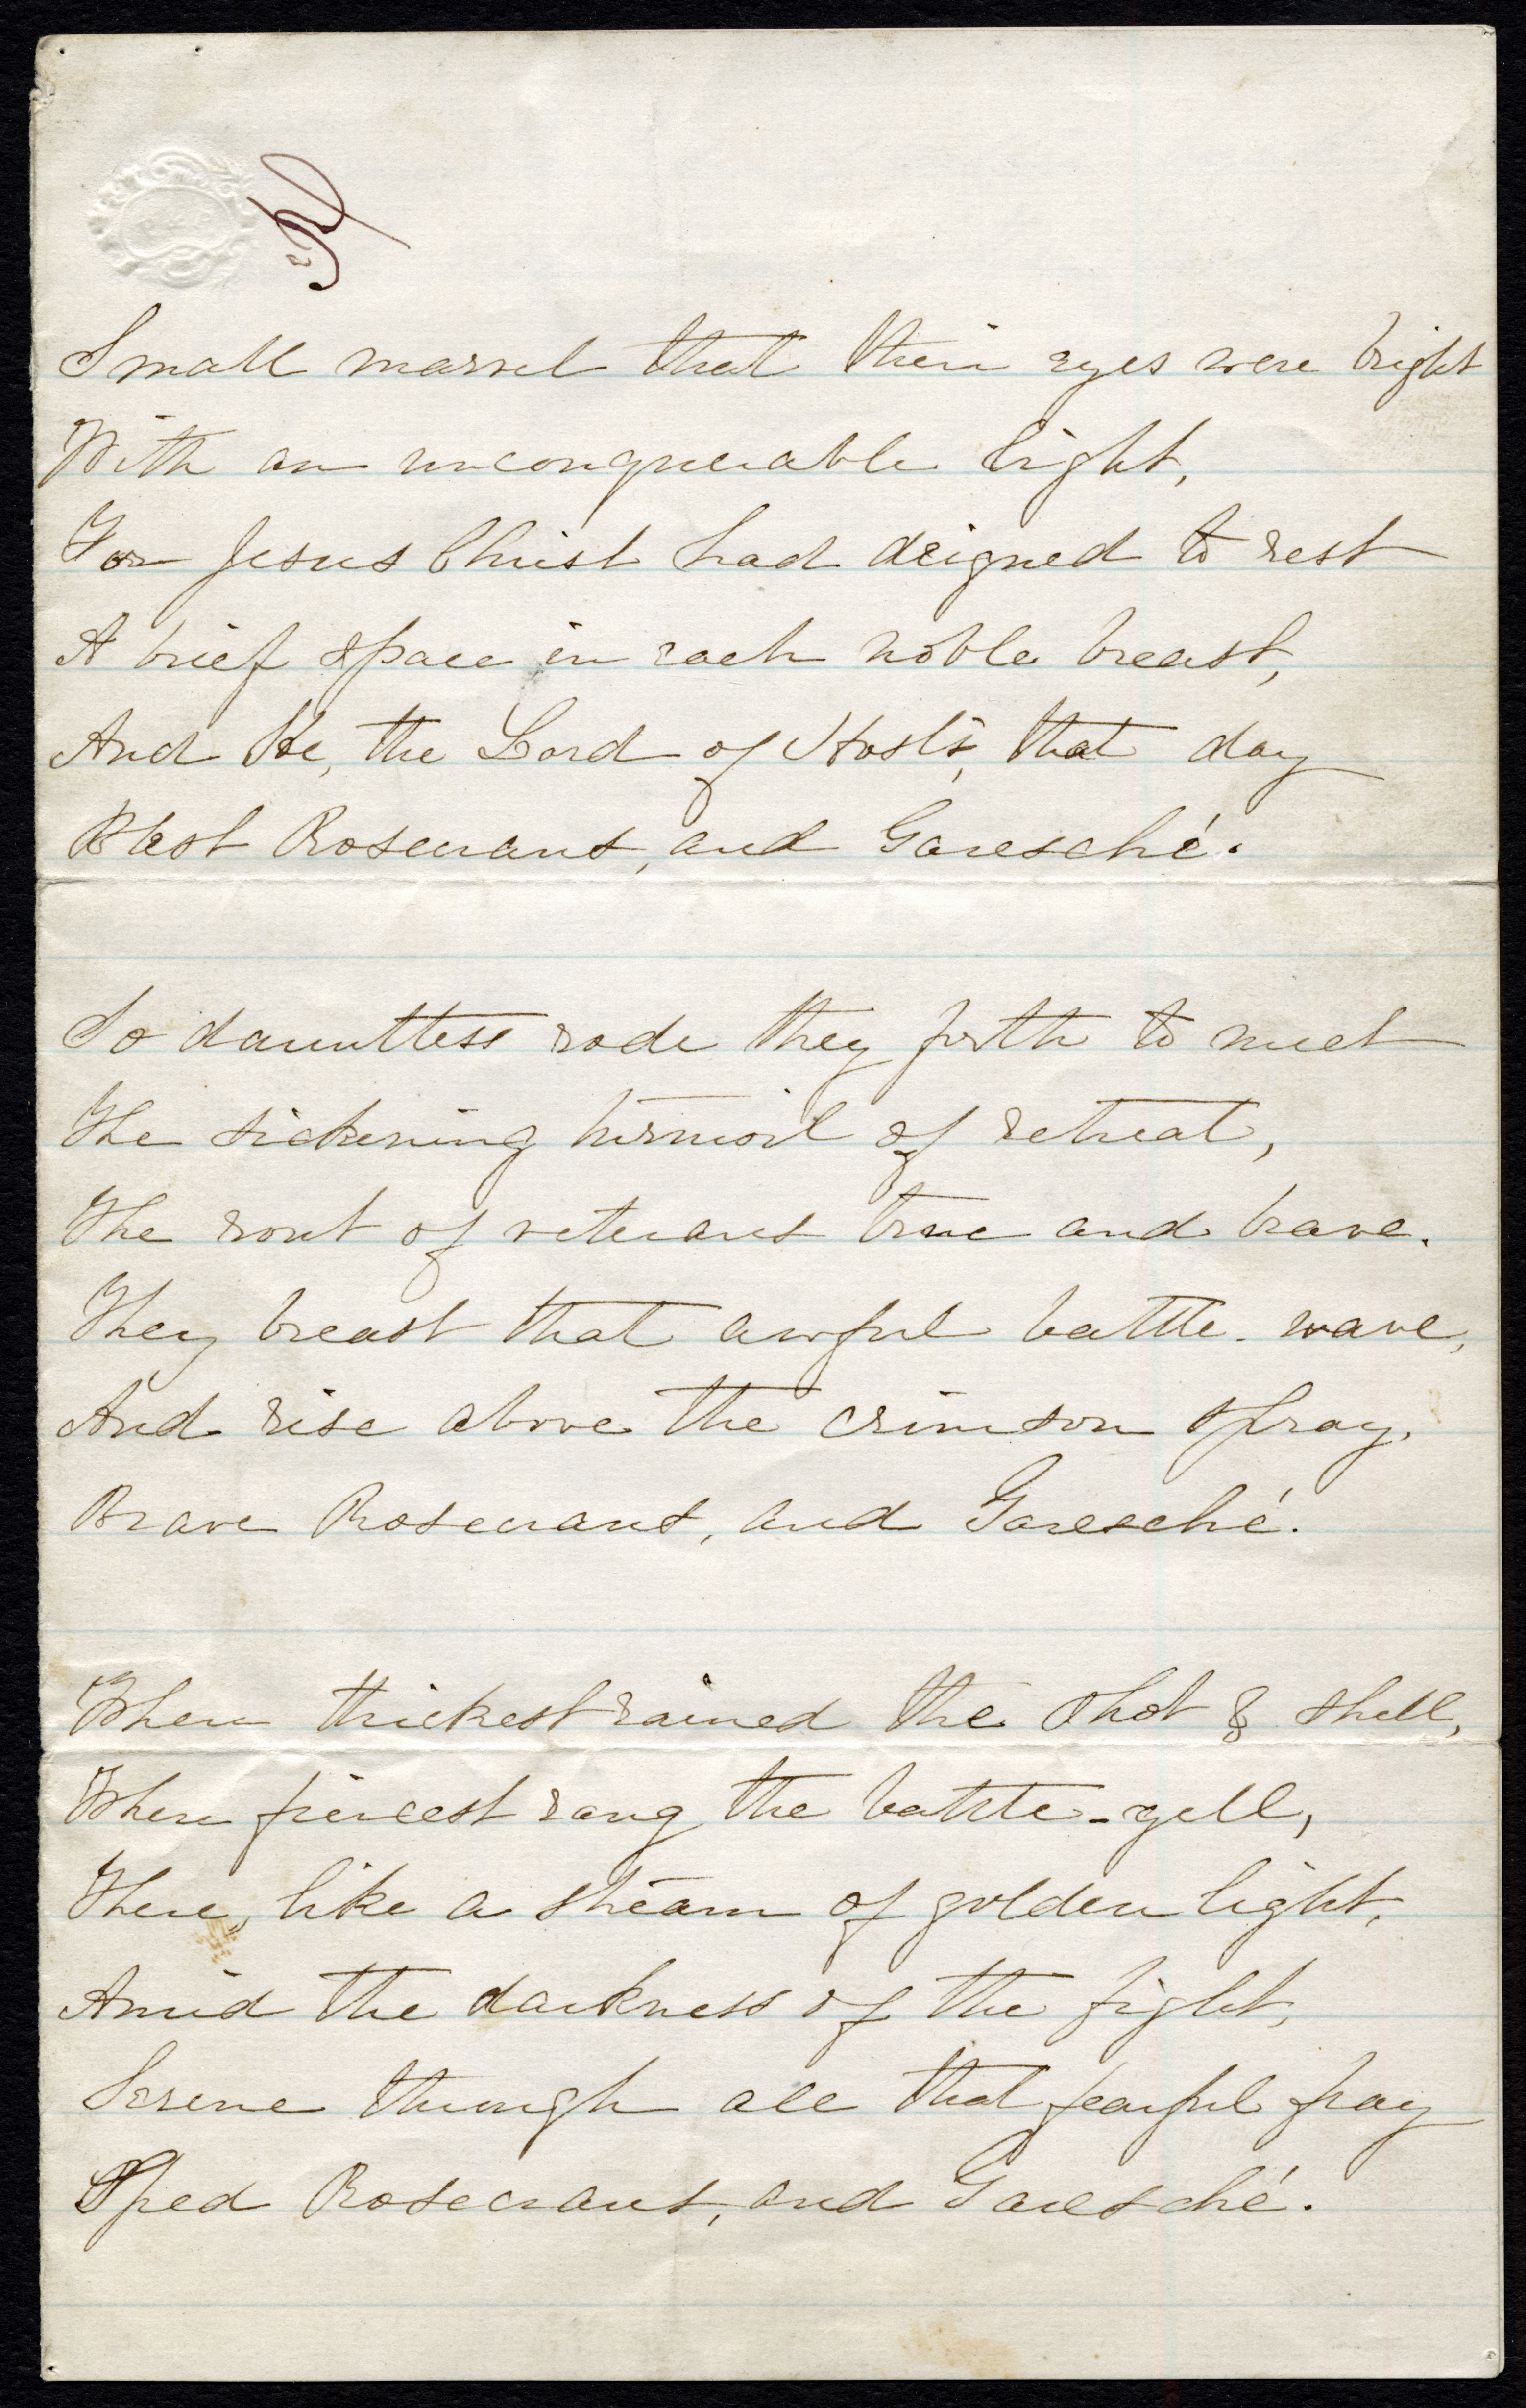 Small marvel that their eyes were bright
With an unconquerable light,
For Jesus Christ had deigned to rest
A brief space in each noble breast,
And He, the Lord of Hosts, that day
Blest Rosecrans, and Garesché.
So dauntless rode they forth to meet
The sickening turmoil of retreat,
The rout of veterans true and brave.
They breast that awful battle-wave,
And rise above the crimson spray,
Brave Rosecrans, and Garesché.
Where thickest rained the shot & shell,
Where fiercest rang the battle-yell,
There, like a stream of golden light,
Amid the darkness of the fight,
Serene through all that fearful fray
Sped Rosecrans, and Garesché.